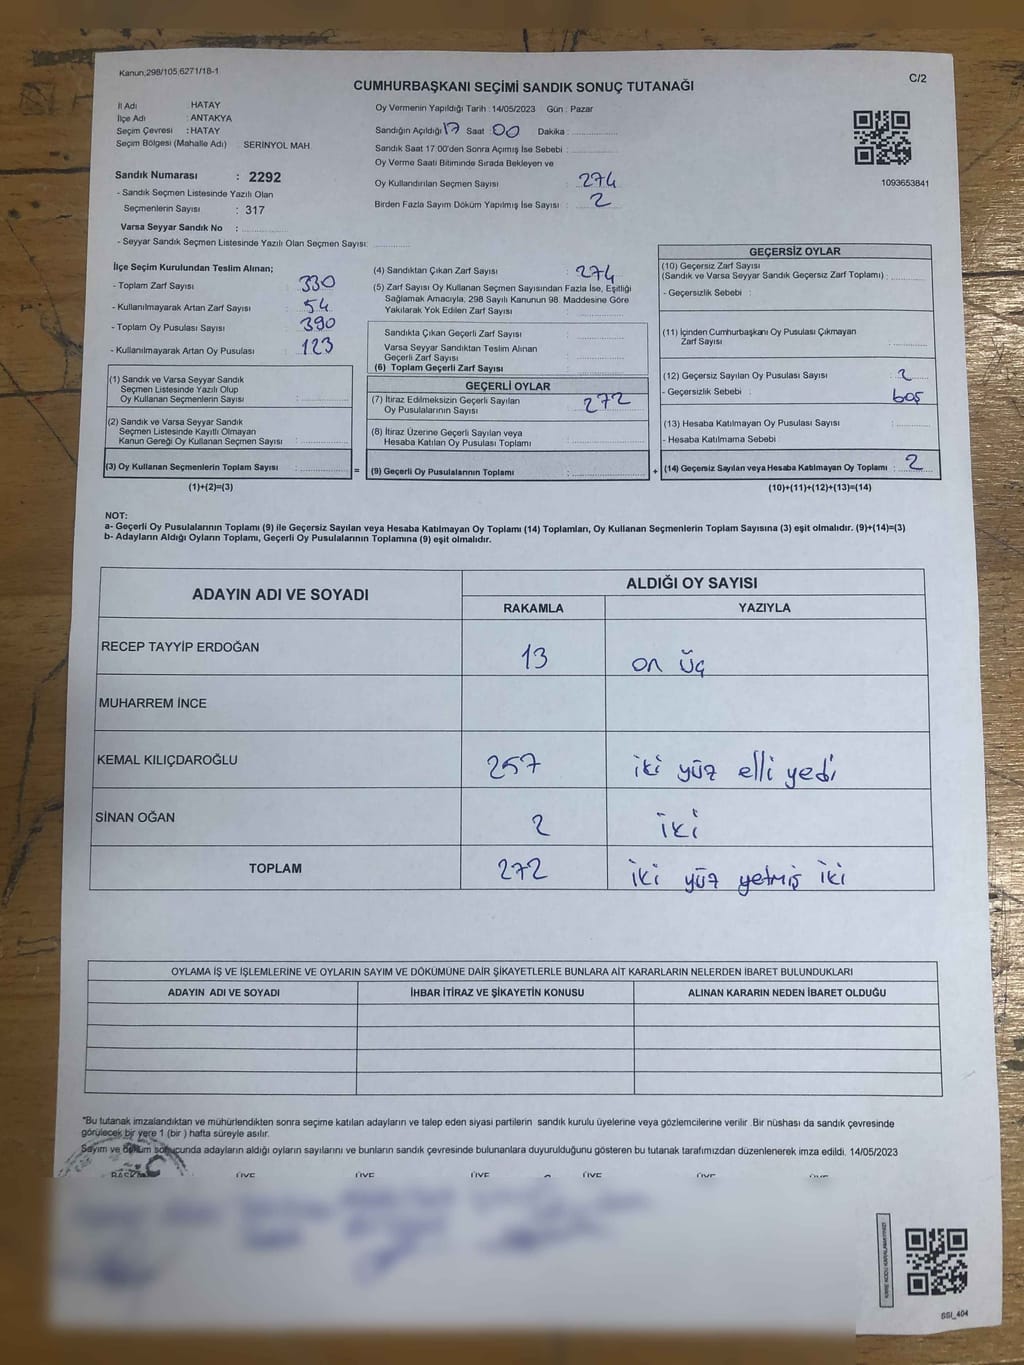 Kanun;298/105;6271/18-1
C/2
CUMHURBAŞKANI SEÇİMİ SANDIK SONUÇ TUTANAĞI
İl Adı : HATAY
İlçe Adı : ANTAKYA
Seçim Çevresi : HATAY
Seçim Bölgesi (Mahalle Adı) SERİNYOL MAH
Sandık Numarası : 2292
- Sandık Seçmen Listesinde Yazılı Olan
Seçmenlerin Sayısı : 317
Varsa Seyyar Sandık No :
- Seyyar Sandık Seçmen Listesinde Yazılı Olan Seçmen Sayısı:
Oy Vermenin Yapıldığı Tarih : 14/05/2023 Gün : Pazar
Sandığın Açıldığı 17 Saat : 00 Dakika :
Sandık Saat 17:00'den Sonra Açımış İse Sebebi :
Oy Verme Saati Bitiminde Sırada Bekleyen ve
Oy Kullandırılan Seçmen Sayısı : 274
Birden Fazla Sayım Döküm Yapılmış İse Sayısı : 2
1093653841
İlçe Seçim Kurulundan Teslim Alınan;
- Toplam Zarf Sayısı : 330
- Kullanılmayarak Artan Zarf Sayısı : 54
- Toplam Oy Pusulası Sayısı : 390
- Kullanılmayarak Artan Oy Pusulası : 123
(1) Sandık ve Varsa Seyyar Sandık
Seçmen Listesinde Yazılı Olup
Oy Kullanan Seçmenlerin Sayısı :
(2) Sandık ve Varsa Seyyar Sandık
Seçmen Listesinde Kayıtlı Olmayan
Kanun Gereği Oy Kullanan Seçmen Sayısı :
(3) Oy Kullanan Seçmenlerin Toplam Sayısı :
(1)+(2)=(3)
(4) Sandıktan Çıkan Zarf Sayısı : 274
(5) Zarf Sayısı Oy Kullanan Seçmen Sayısından Fazla İse, Eşitliği
Sağlamak Amacıyla, 298 Sayılı Kanunun 98. Maddesine Göre
Yakılarak Yok Edilen Zarf Sayısı :
Sandıkta Çıkan Geçerli Zarf Sayısı :
Varsa Seyyar Sandıktan Teslim Alınan
Geçerli Zarf Sayısı :
(6) Toplam Geçerli Zarf Sayısı :
GEÇERLİ OYLAR
(7) İtiraz Edilmeksizin Geçerli Sayılan
Oy Pusulalarının Sayısı : 272
(8) İtiraz Üzerine Geçerli Sayılan veya
Hesaba Katılan Oy Pusulası Toplamı :
= (9) Geçerli Oy Pusulalarının Toplamı :
GEÇERSİZ OYLAR
(10) Geçersiz Zarf Sayısı
(Sandık ve Varsa Seyyar Sandık Geçersiz Zarf Toplamı) :
- Geçersizlik Sebebi :
(11) İçinden Cumhurbaşkanı Oy Pusulası Çıkmayan
Zarf Sayısı :
(12) Geçersiz Sayılan Oy Pusulası Sayısı : 2
- Geçersizlik Sebebi : boş
(13) Hesaba Katılmayan Oy Pusulası Sayısı :
- Hesaba Katılmama Sebebi :
+ (14) Geçersiz Sayılan veya Hesaba Katılmayan Oy Toplamı : 2
(10)+(11)+(12)+(13)=(14)
NOT:
a- Geçerli Oy Pusulalarının Toplamı (9) ile Geçersiz Sayılan veya Hesaba Katılmayan Oy Toplamı (14) Toplamları, Oy Kullanan Seçmenlerin Toplam Sayısına (3) eşit olmalıdır. (9)+(14)=(3)
b- Adayların Aldığı Oyların Toplamı, Geçerli Oy Pusulalarının Toplamına (9) eşit olmalıdır.
ADAYIN ADI VE SOYADI ALDIĞI OY SAYISI
RAKAMLA YAZIYLA
RECEP TAYYİP ERDOĞAN 13 on üç
MUHARREM İNCE
KEMAL KILIÇDAROĞLU 257 iki yüz elli yedi
SİNAN OĞAN 2 iki
TOPLAM 272 iki yüz yetmiş iki
OYLAMA İŞ VE İŞLEMLERİNE VE OYLARIN SAYIM VE DÖKÜMÜNE DAİR ŞİKAYETLERLE BUNLARA AİT KARARLARIN NELERDEN İBARET BULUNDUKLARI
ADAYIN ADI VE SOYADI İHBAR İTİRAZ VE ŞİKAYETİN KONUSU ALINAN KARARIN NEDEN İBARET OLDUĞU
*Bu tutanak imzalandıktan ve mühürlendikten sonra seçime katılan adayların ve talep eden siyasi partilerin sandık kurulu üyelerine veya gözlemcilerine verilir .Bir nüshası da sandık çevresinde
görülecek bir yere 1 (bir ) hafta süreyle asılır.
Sayım ve döküm sonucunda adayların aldığı oyların sayılarını ve bunların sandık çevresinde bulunanlara duyurulduğunu gösteren bu tutanak tarafımızdan düzenlenerek imza edildi. 14/05/2023
BAŞKAN ÜYE ÜYE ÜYE ÜYE ÜYE ÜYE
SSI_404